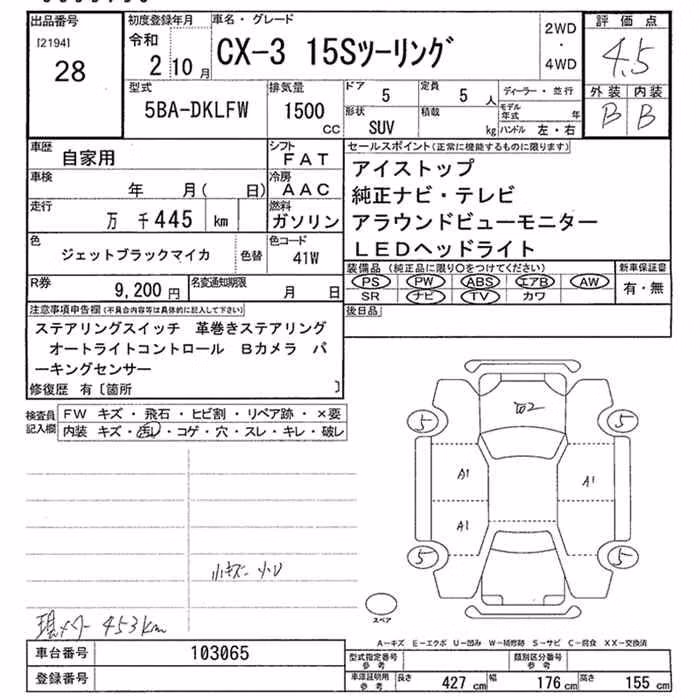 出品番号
[2194]
28
初度登録年月
令和
2 10 月
車名・グレード
CX-3 15Sツーリング
2WD
・
4WD
評価点
4.5
外装 内装
B B
型式
5BA-DKLFW
排気量
1500
CC
ドア
5
定員
5 人
形状
SUV
積載
kg
ディーラー・並行
モデル年式 年
ハンドル 左・右
車歴
自家用
シフト
FAT
車検
年 月( 日)
冷房
AAC
走行
万 千445 km
燃料
ガソリン
色
ジェットブラックマイカ
色替
色コード
41W
R券
9,200 円
名変通知期限
月 日
セールスポイント(正常に機能するものに限ります)
アイストップ
純正ナビ・テレビ
アラウンドビューモニター
LEDヘッドライト
装備品 (純正品に限り○をつけてください)
PS PW ABS エアB AW
SR ナビ TV カワ
新車保証書
有・無
後日品
注意事項申告欄(不具合内容等は具体的に記入して下さい)
ステアリングスイッチ 革巻きステアリング
オートライトコントロール Bカメラ パ
ーキングセンサー
修復歴 有〔箇所 〕
検査員記入欄
FW キズ・飛石・ヒビ割・リペア跡・×要
内装 キズ・汚レ・コゲ・穴・スレ・キレ・破レ
小キズ 小U
現メーター 453km
5 5
A1 A1
A1
5 5
スペア
A-キズ E-エクボ U-凹み W-補修跡 S-サビ C-腐食 XX-交換済
車台番号
103065
登録番号
型式指定番号
参考
類別区分番号
参考
車庫証明用
参考
長さ 427 cm 幅 176 cm 高さ 155 cm